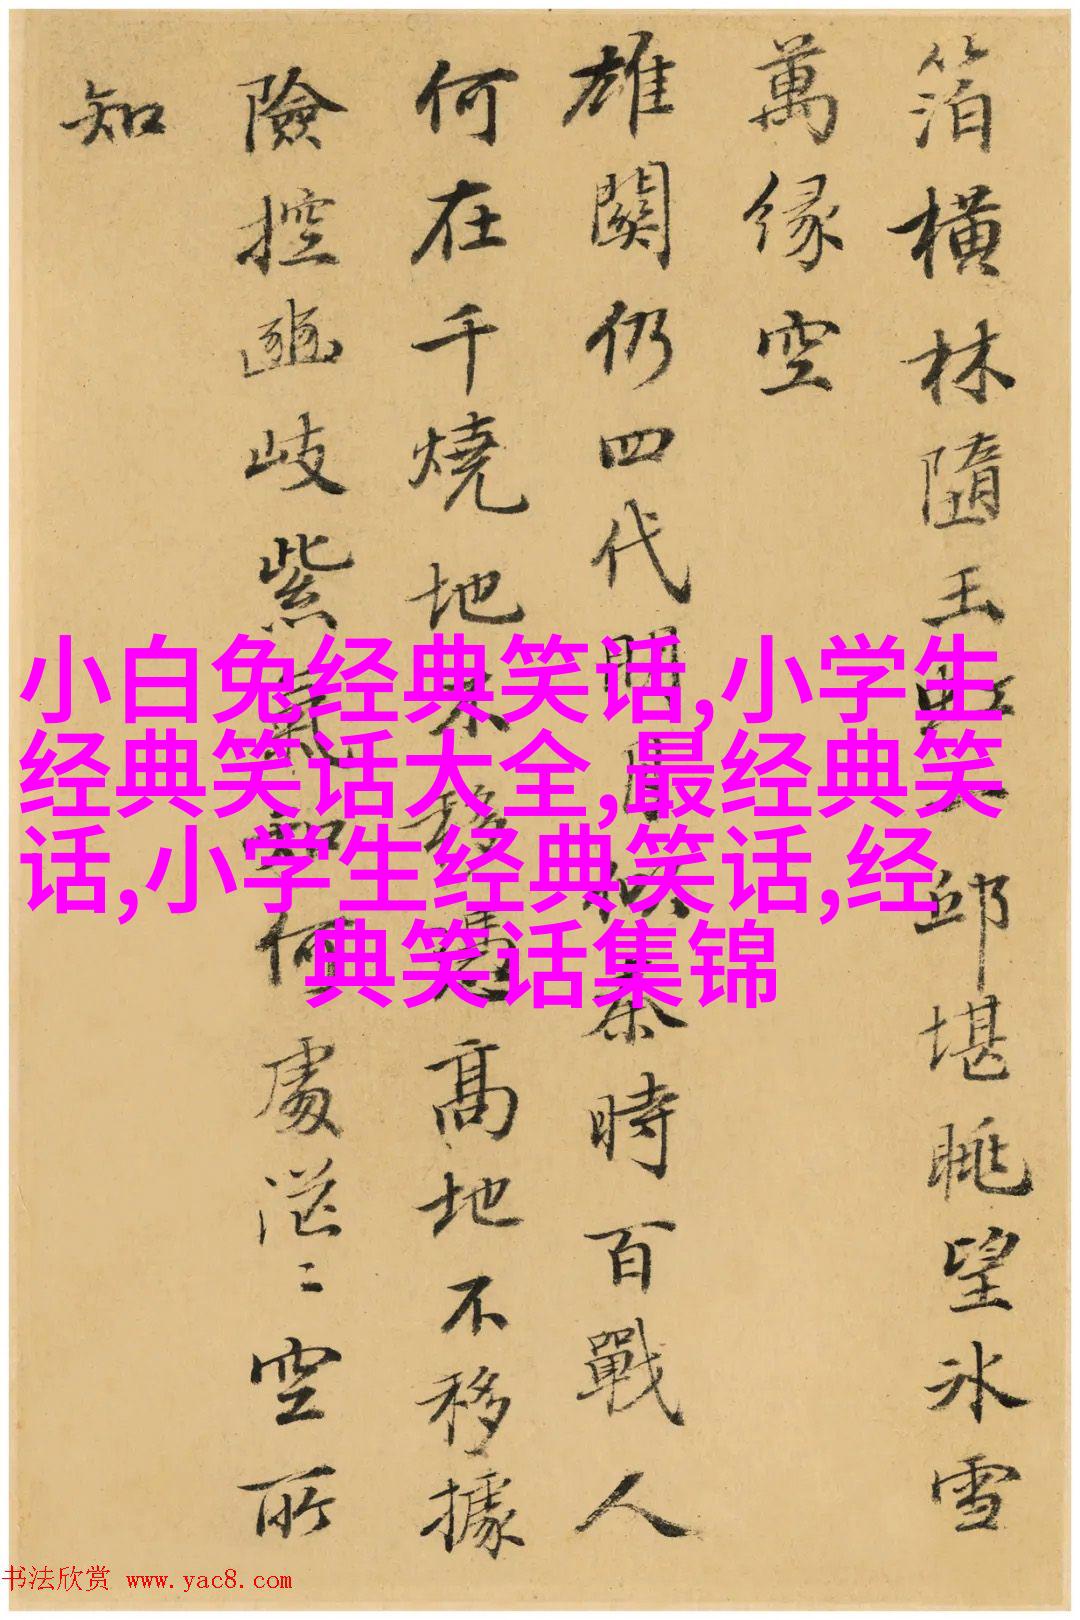 箔橫林隨玉虹 邱堪眺望冰雪
萬緣空
雄關仍四代 月 秦時百戰人
何在千燒地不移 高地不移據
險控豳岐紫氣 何處茫〻空所
知
小白兔经典笑话,小学生
经典笑话大全,最经典笑
话,小学生经典笑话,经
典笑话集锦
书法欣赏 www.yac8.com